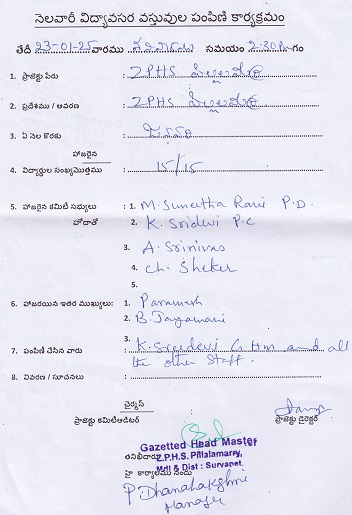 నెలవారీ విద్యావసర వస్తువుల పంపిణి కార్యక్రమం
తేదీ 23-01-25 వారము సమయం 2:30 గం
1. ప్రాజెక్టు పేరు : ZPHS పిల్లలమర్రి
2. ప్రదేశము / ఆవరణ : ZPHS పిల్లలమర్రి
3. ఏ నెల కొరకు :
హాజరైన
4. విద్యార్థుల సంఖ్యమొత్తము : 15/15
5. హాజరైన కమిటి సభ్యులు : 1. M. Suneetha Rani P.D.
హోదాతో 2. K. Sridevi P.C
3. A. Srinivas
4. Ch. Sheker
5.
6. హాజరయిన ఇతర ముఖ్యులు: 1. Paramesh
2. B. Jayamani
3.
7. పంపిణి చేసిన వారు : K. Sreedevi G.Hm and all
the other Staff.
8. వివరణ / సూచనలు :
చైర్మన్
ప్రాజెక్టు కమిటీఆడిటర్ ప్రాజెక్టు డైరెక్టర్
Gazetted Head Master
తనిఖీదారు Z.P.H.S. Pillalamarry,
Mdl & Dist : Suryapet.
హై కార్యాలము నందు
P. Dhanalakshmi
Manager